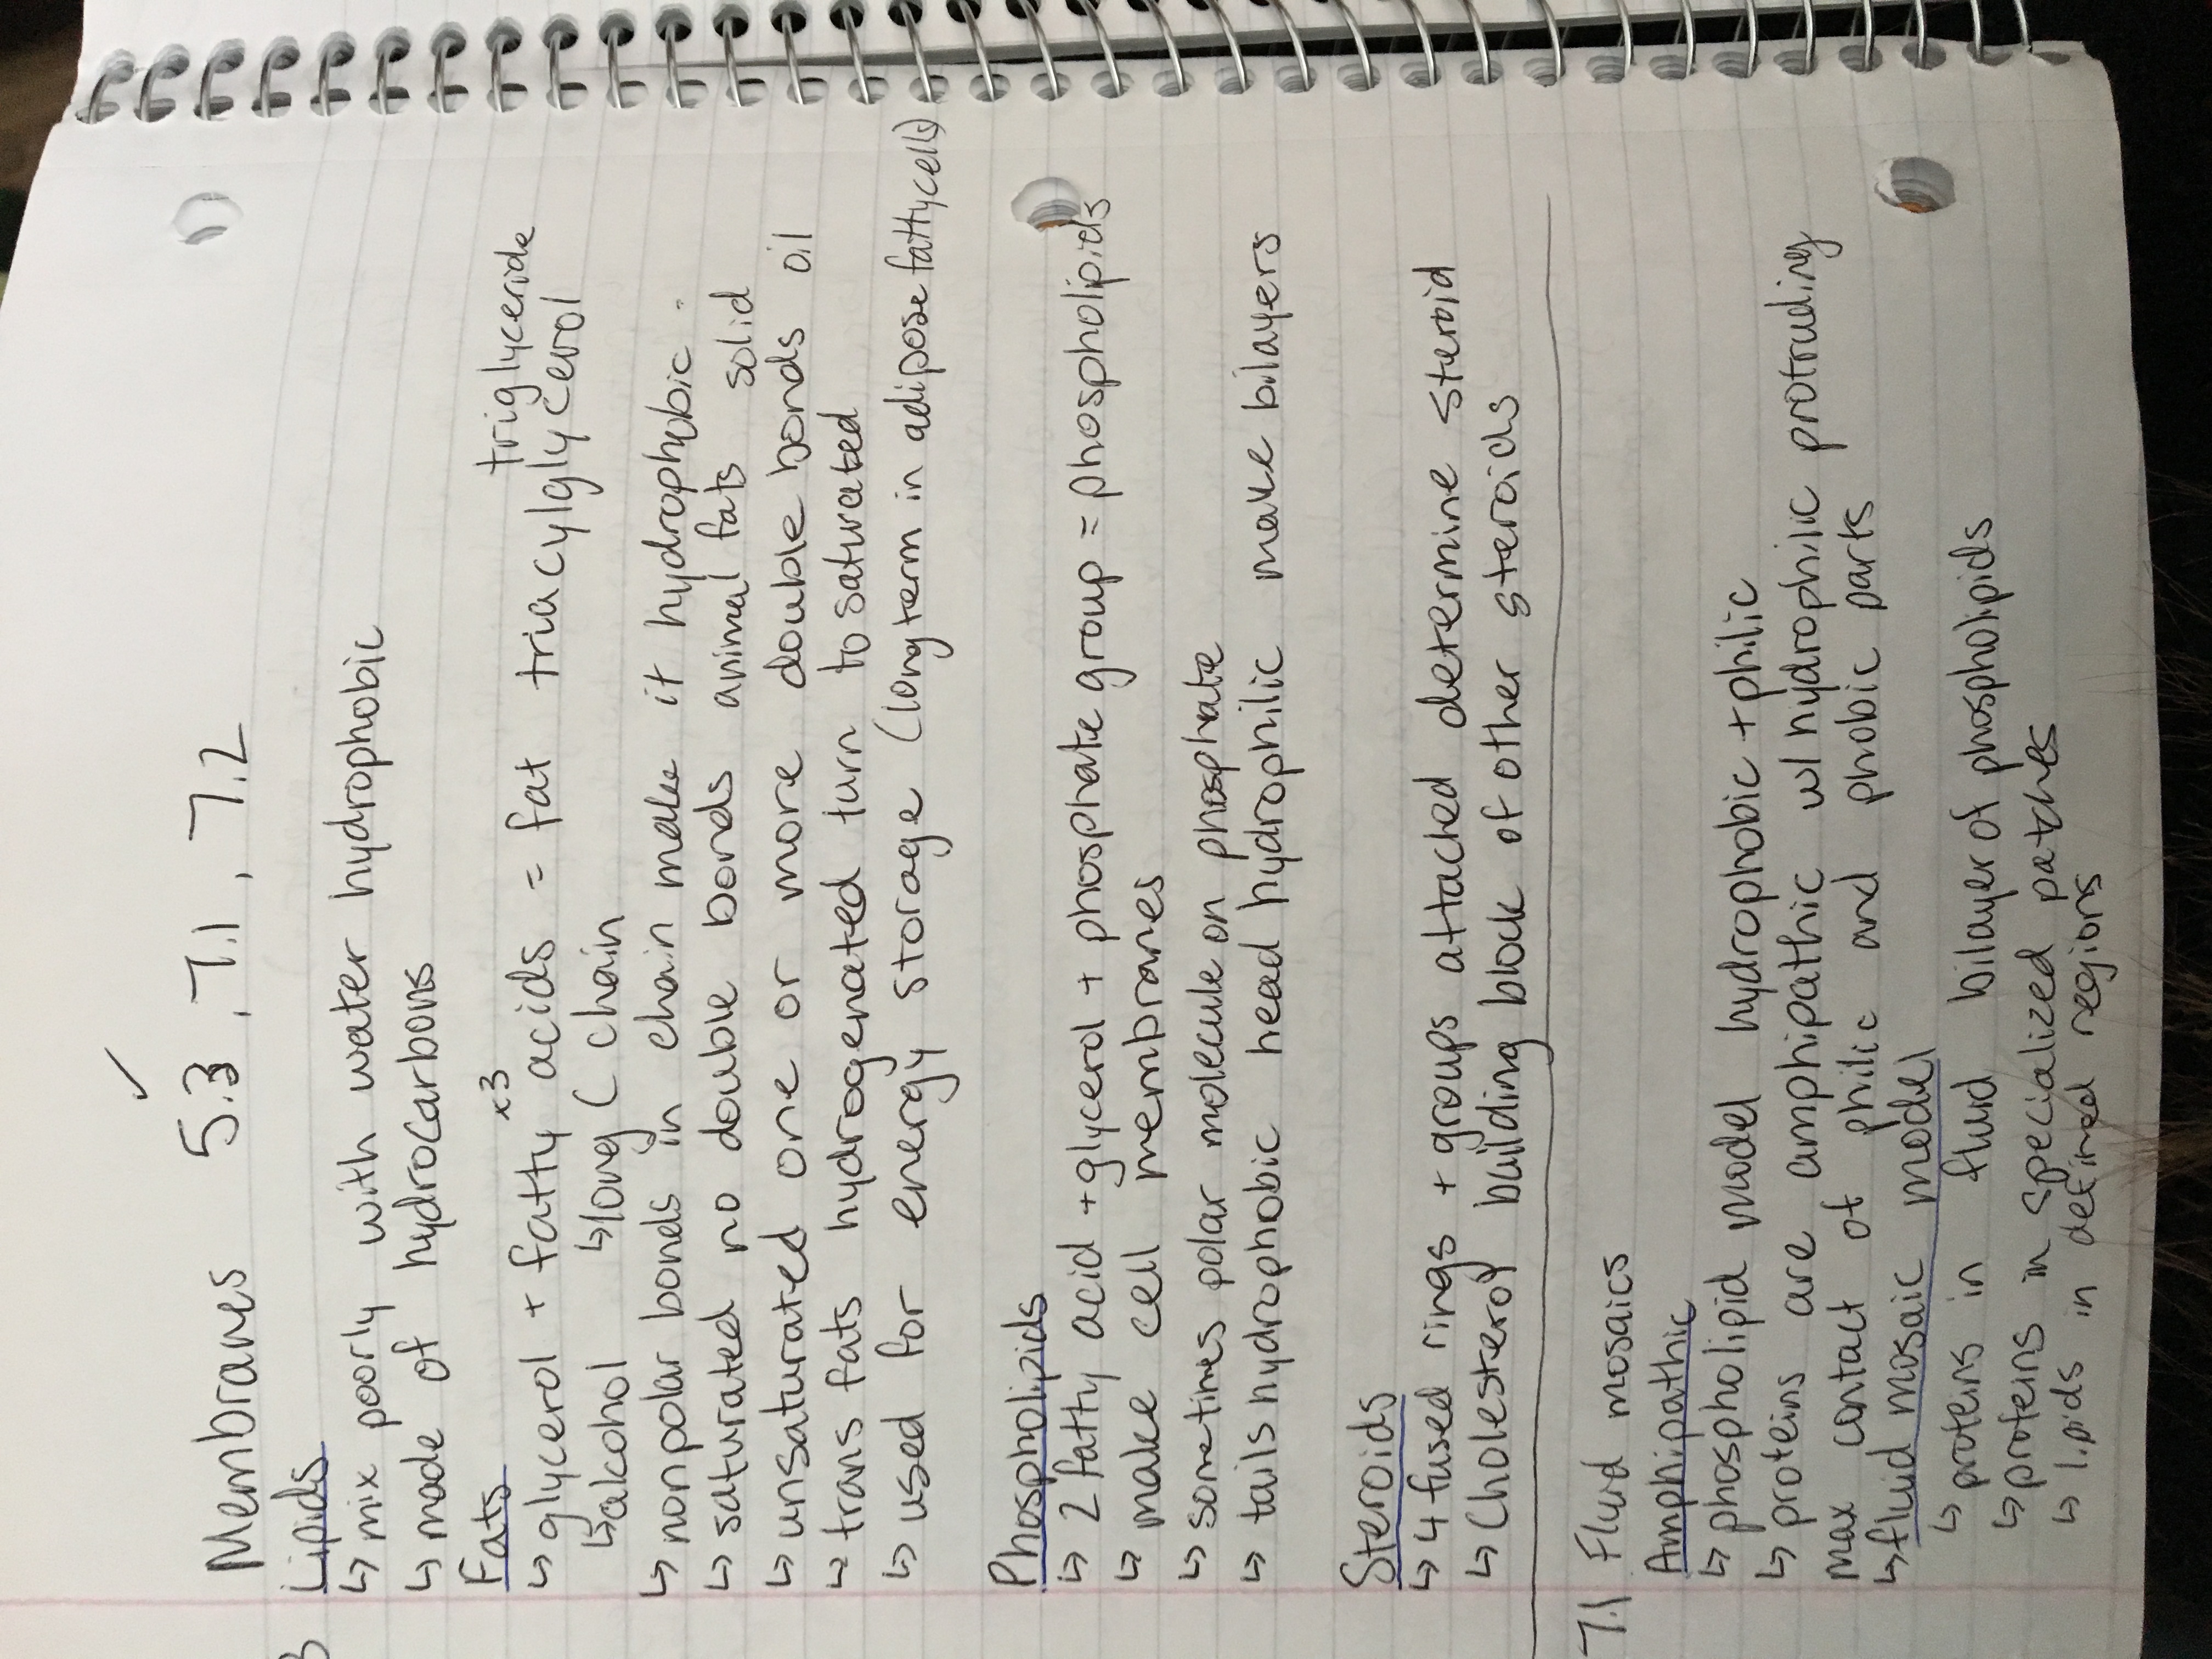 Membranes 5.3, 7.1, 7.2
Lipids
↳ mix poorly with water hydrophobic
↳ made of hydrocarbons
Fats
↳ glycerol + fatty acids x3 = fat triacylglycerol triglyceride
↳ alcohol ↳ long C chain
↳ nonpolar bonds in chain make it hydrophobic
↳ saturated no double bonds animal fats solid
↳ unsaturated one or more double bonds oil
↳ trans fats hydrogenated turn to saturated
↳ used for energy storage (longterm in adipose fattycells)
Phospholipids
↳ 2 fatty acid + glycerol + phosphate group = phospholipids
↳ make cell membranes
↳ sometimes polar molecule on phosphate
↳ tails hydrophobic head hydrophilic make bilayers
Steroids
↳ 4 fused rings + groups attached determine steroid
↳ Cholesterol building block of other steroids
7.1 Fluid mosaics
Amphipathic
↳ phospholipid model hydrophobic + philic
↳ proteins are amphipathic w/ hydrophilic protruding
max contact of philic and phobic parts
↳ fluid mosaic model
↳ proteins in fluid bilayer of phospholipids
↳ proteins in specialized patches
↳ lipids in defined regions